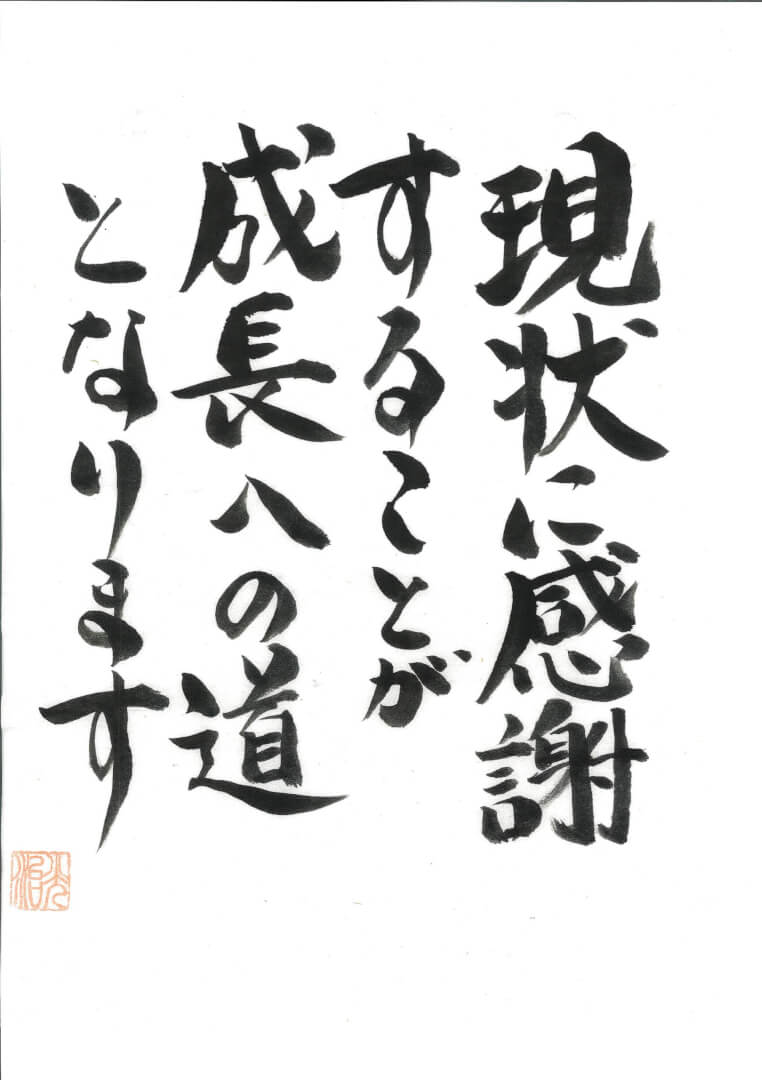 現状に感謝
することが
成長への道
となります